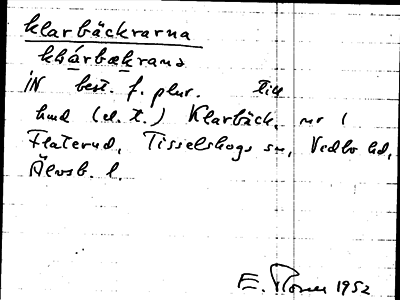 klarbäckrarna
klårbækrana
IN best. f. plur. till
hmd (el. t.) Klarbäck, nr 1
Flaterud, Tisselskogs sn, Vedbo hd,
Älvsb. l.
E. 1952